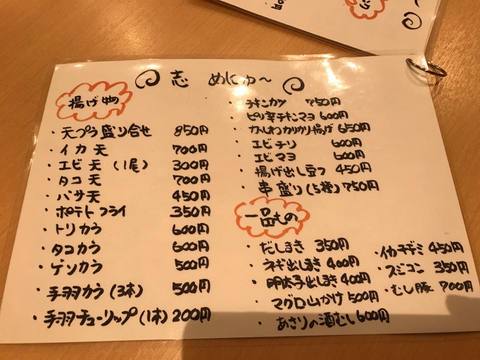 志 めにゅ〜
揚げ物
・天ぷら盛り合せ 850円
・イカ天 700円
・エビ天(1尾) 300円
・タコ天 700円
・バサ天 450円
・ポテトフライ 350円
・トリカラ 600円
・タコカラ 600円
・ゲソカラ 500円
・手羽カラ(3本) 500円
・手羽チューリップ(1本) 200円
・チキンカツ 750円
・ピリ辛チキンマヨ 600円
・かしわカリカリ揚げ 650円
・エビチリ 600円
・エビマヨ 600円
・揚げ出し豆フ 450円
・串盛り(5種) 750円
一品もの
・だしまき 350円
・ネギ出しまき 400円
・明太子出しまき 400円
・マグロ山かけ 500円
・あさりの酒むし 600円
・イカチヂミ 450円
・スジコン 350円
・むし豚 700円